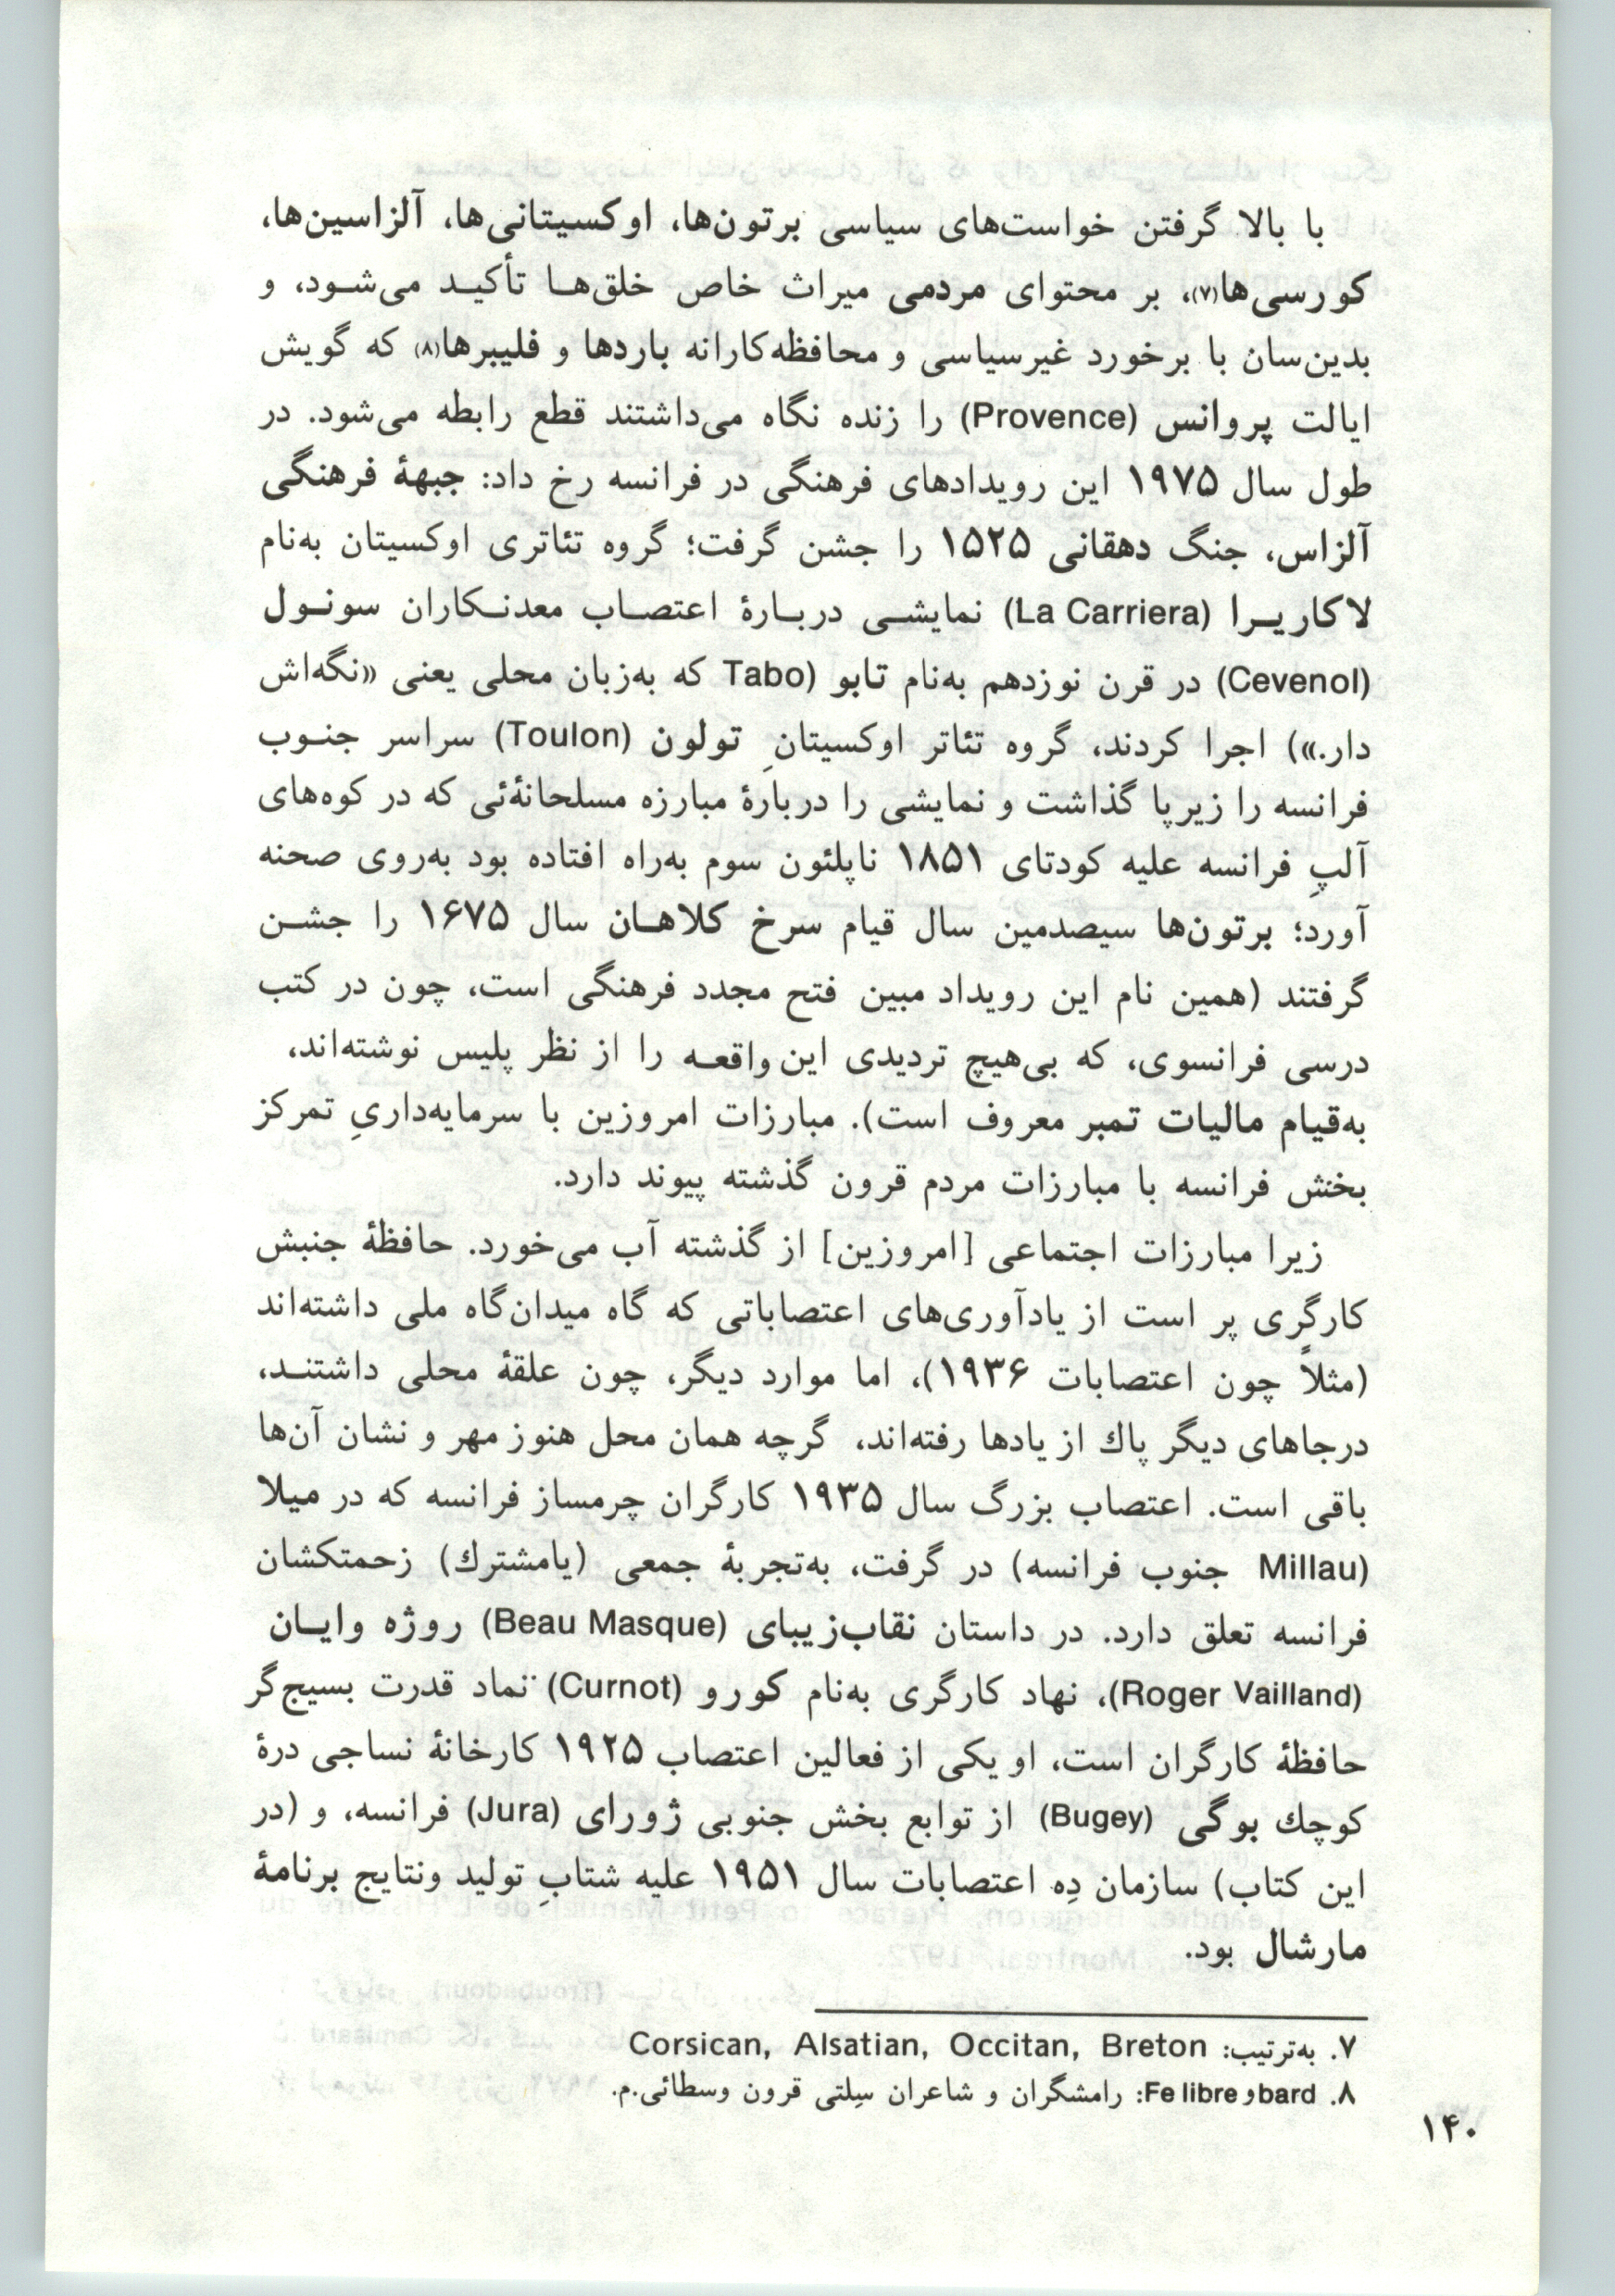 با بالا گرفتن خواست‌های سیاسی برتون‌ها، اوکسیتانی‌ها، آلزاسین‌ها،
کورسی‌ها(۷)، بر محتوای مردمی میراث خاص خلق‌هـا تأکیـد می‌شـود، و
بدین‌سان با برخورد غیرسیاسی و محافظه‌کارانه باردها و فلیبرها(۸) که گویش
ایالت پروانس (Provence) را زنده نگاه می‌داشتند قطع رابطه می‌شود. در
طول سال ۱۹۷۵ این رویدادهای فرهنگی در فرانسه رخ داد: جبههٔ فرهنگی
آلزاس، جنگ دهقانی ۱۵۲۵ را جشن گرفت؛ گروه تئاتری اوکسیتان به‌نام
لاکاریـرا (La Carriera) نمایشـی دربـارهٔ اعتصـاب معدنـکاران سونـول
(Cevenol) در قرن نوزدهم به‌نام تابو (Tabo که به‌زبان محلی یعنی «نگه‌اش
دار.») اجرا کردند، گروه تئاتر اوکسیتانِ تولون (Toulon) سراسر جنـوب
فرانسه را زیرپا گذاشت و نمایشی را دربارهٔ مبارزه مسلحانهٔئی که در کوه‌های
آلپِ فرانسه علیه کودتای ۱۸۵۱ ناپلئون سوم به‌راه افتاده بود به‌روی صحنه
آورد؛ برتون‌ها سیصدمین سال قیام سرخ کلاهـان سال ۱۶۷۵ را جشـن
گرفتند (همین نام این رویداد مبین فتح مجدد فرهنگی است، چون در کتب
درسی فرانسوی، که بی‌هیچ تردیدی این واقعـه را از نظر پلیس نوشته‌اند،
به‌قیام مالیات تمبر معروف است). مبارزات امروزین با سرمایه‌داریِ تمرکز
بخش فرانسه با مبارزات مردم قرون گذشته پیوند دارد.
زیرا مبارزات اجتماعی [امروزین] از گذشته آب می‌خورد. حافظهٔ جنبش
کارگری پر است از یادآوری‌های اعتصاباتی که گاه میدان‌گاه ملی داشته‌اند
(مثلاً چون اعتصابات ۱۹۳۶)، اما موارد دیگر، چون علقهٔ محلی داشتنـد،
درجاهای دیگر پاك از یادها رفته‌اند، گرچه همان محل هنوز مهر و نشان آن‌ها
باقی است. اعتصاب بزرگ سال ۱۹۳۵ کارگران چرمساز فرانسه که در میلا
(Millau جنوب فرانسه) در گرفت، به‌تجربهٔ جمعی (یامشترك) زحمتکشان
فرانسه تعلق دارد. در داستان نقاب‌زیبای (Beau Masque) روژه وایـان
(Roger Vailland)، نهاد کارگری به‌نام کورو (Curnot) نماد قدرت بسیج‌گر
حافظهٔ کارگران است، او یکی از فعالین اعتصاب ۱۹۲۵ کارخانهٔ نساجی درهٔ
کوچك بوگی (Bugey) از توابع بخش جنوبی ژورای (Jura) فرانسه، و (در
این کتاب) سازمان دِه اعتصابات سال ۱۹۵۱ علیه شتابِ تولید ونتایج برنامهٔ
مارشال بود.
۷. به‌ترتیب: Corsican, Alsatian, Occitan, Breton
۸. bard و Fe libre: رامشگران و شاعران سِلتی قرون وسطائی.م.
۱۴۰